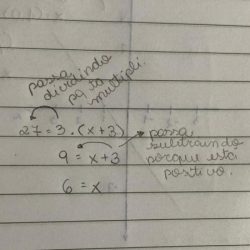 passa
dividindo
pq tá
multipli.
27 = 3 . (x+3)
9 = x+3
6 = x
passa
subtraindo
porque está
positivo.